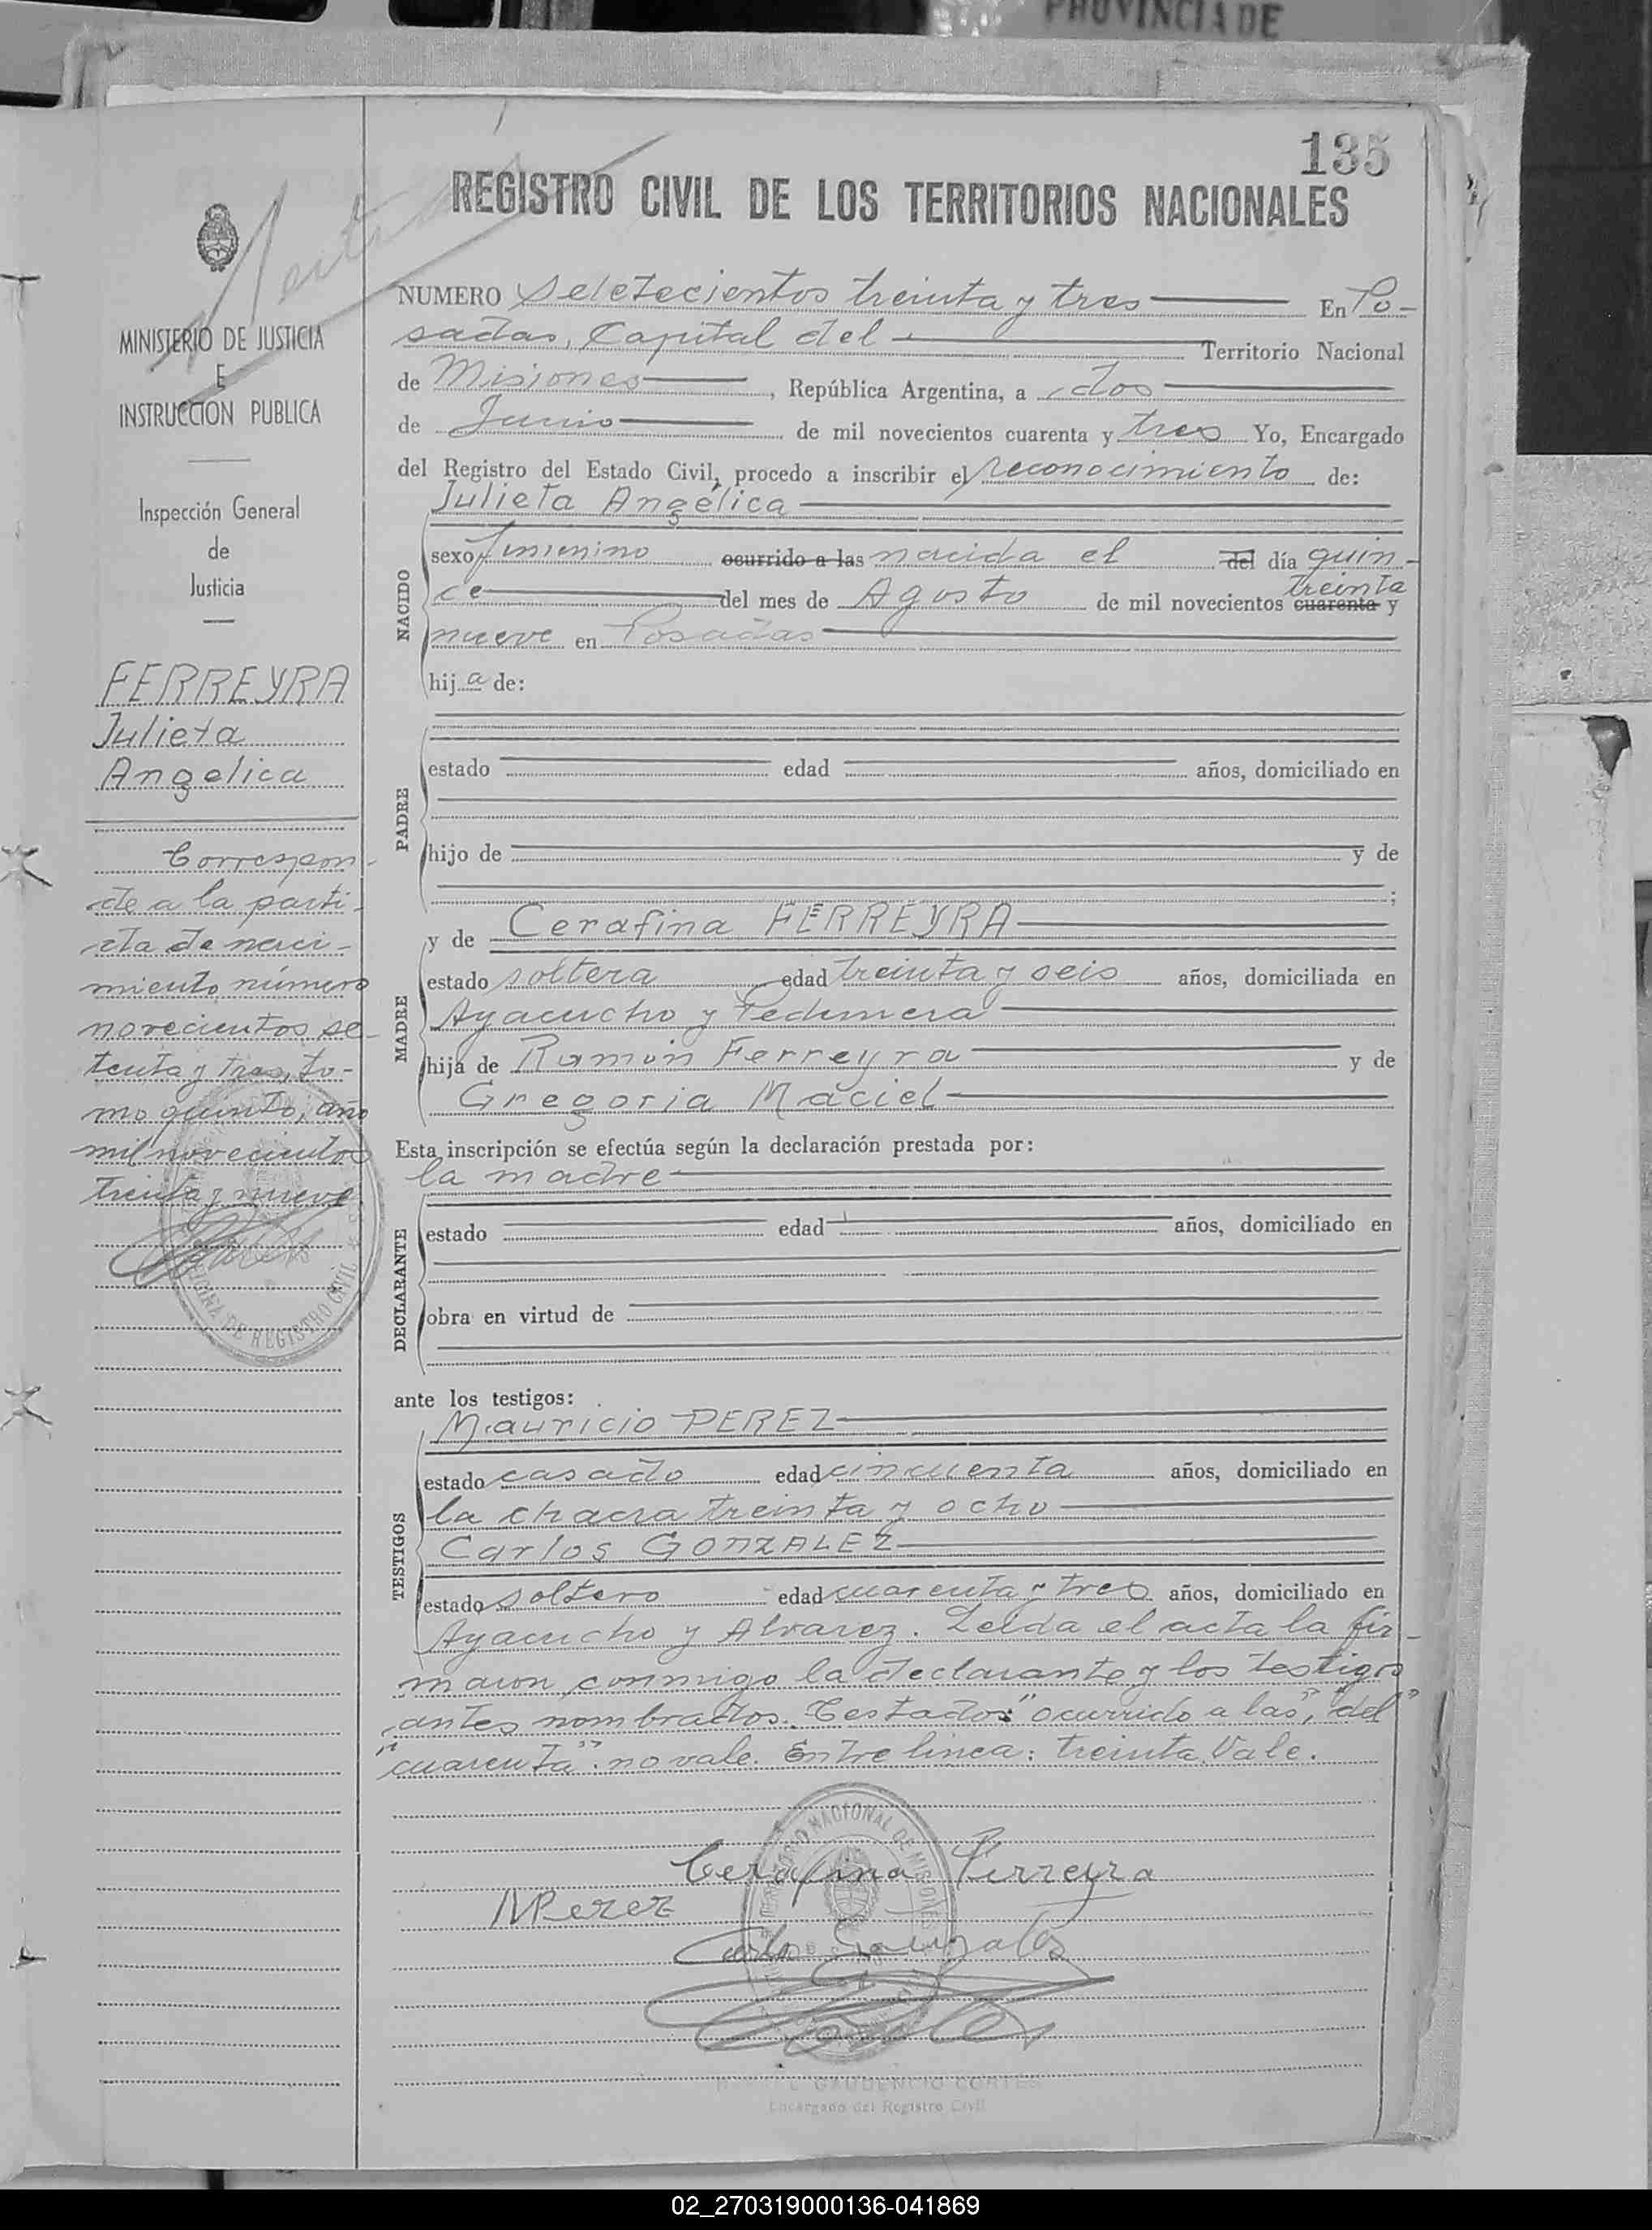 PROVINCIA DE
135
REGISTRO CIVIL DE LOS TERRITORIOS NACIONALES
MINISTERIO DE JUSTICIA
E
INSTRUCCION PUBLICA
Inspección General
de
Justicia
FERREYRA
Julieta
Angelica
Correspon-
de a la parti-
da de naci-
miento número
novecientos se-
tenta y tres, to-
mo quinto, año
mil novecientos
treinta y nueve
OFICINA DE REGISTRO CIVIL
NUMERO Seletecientos treinta y tres En Po-
sadas, Capital del Territorio Nacional
de Misiones, República Argentina, a dos
de Junio de mil novecientos cuarenta y tres Yo, Encargado
del Registro del Estado Civil, procedo a inscribir el reconocimiento de:
Julieta Angélica
NACIDO
sexo femenino ocurrido a las nacida el del día quin-
treinta
ce del mes de Agosto de mil novecientos cuarenta y
nueve en Posadas
hija de:
PADRE
estado edad años, domiciliado en
hijo de y de
;
MADRE
y de Cerafina FERREYRA
estado soltera edad treinta y seis años, domiciliada en
Ayacucho y Pedernera
hija de Ramón Ferreyra y de
Gregoria Maciel
Esta inscripción se efectúa según la declaración prestada por:
la madre
DECLARANTE
estado edad años, domiciliado en
obra en virtud de
ante los testigos:
TESTIGOS
Mauricio PEREZ
estado casado edad cincuenta años, domiciliado en
la chacra treinta y ocho
Carlos GONZALEZ
estado soltero edad cuarenta y tres años, domiciliado en
Ayacucho y Alvarez. Leída el acta la fir-
maron conmigo la declarante y los testigos
antes nombrados. Testados: "ocurrido a las", "del"
"cuarenta": no vale. Entre línea: treinta. Vale.
TERRITORIO NACIONAL DE MISIONES
Cerafina Ferreyra
M Perez
Carlos Gonzales
GAUDENCIO CORTES
Encargado del Registro Civil
02_270319000136-041869